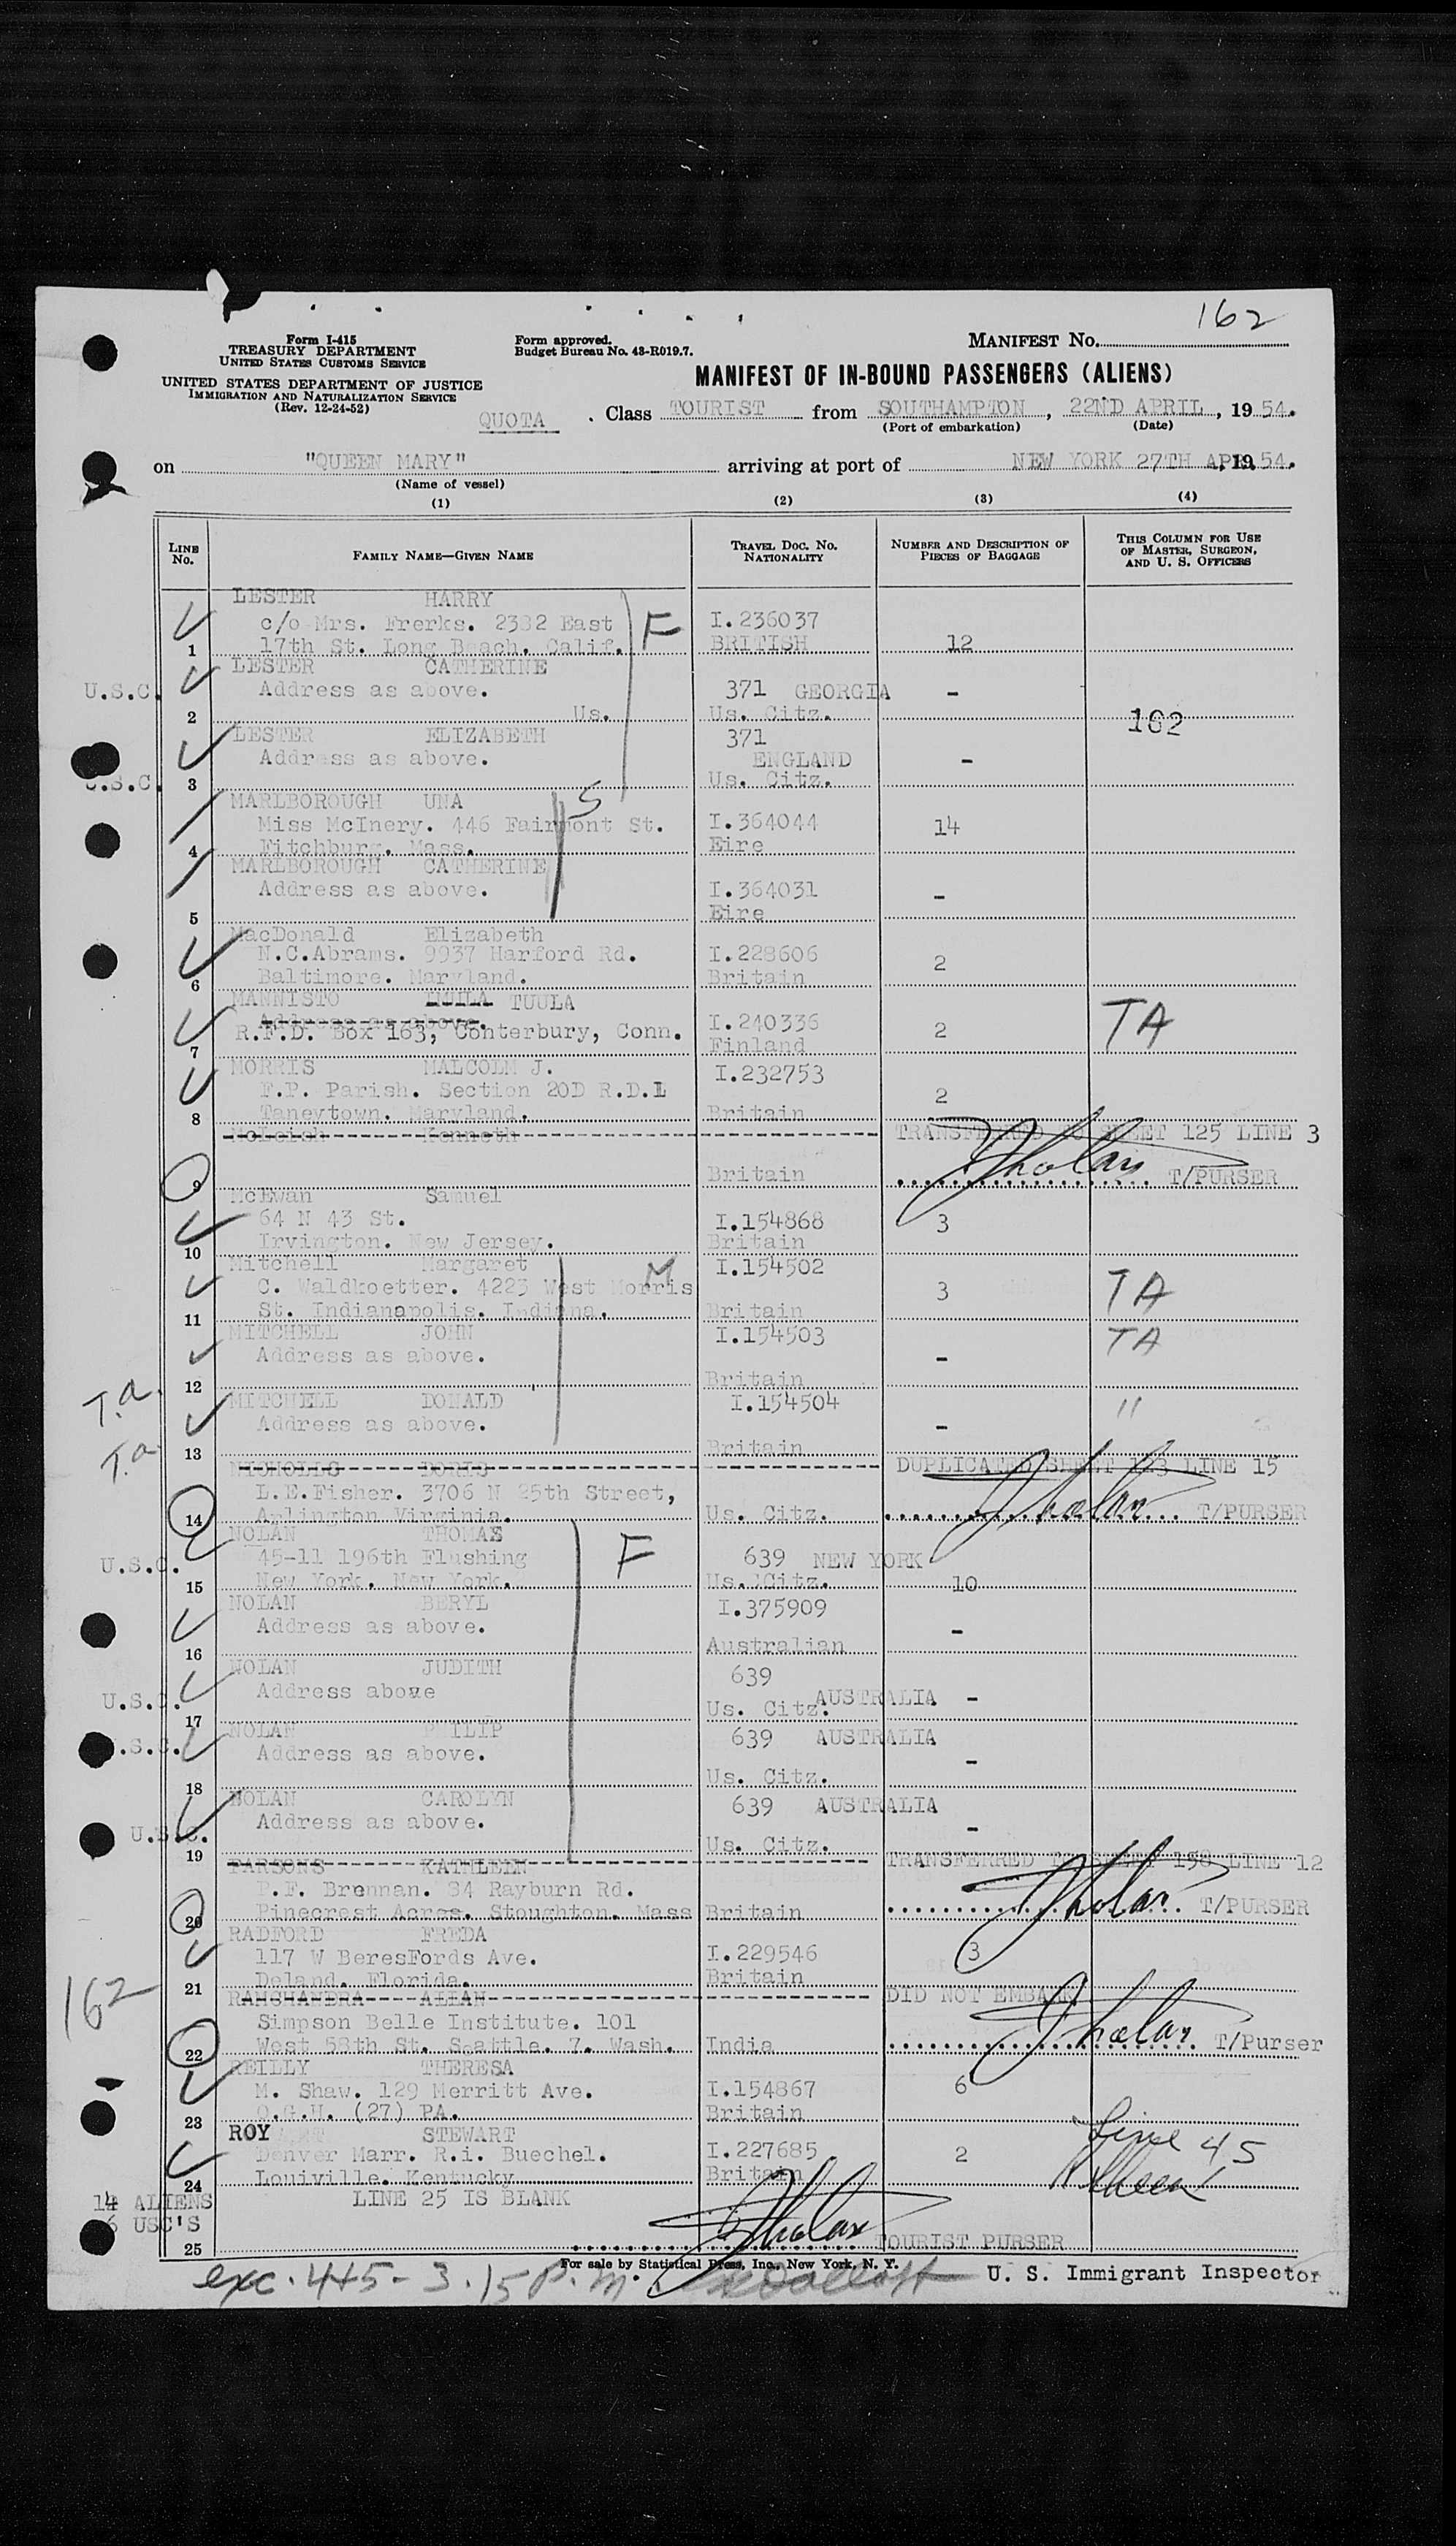 162
Form I-415
TREASURY DEPARTMENT
UNITED STATES CUSTOMS SERVICE
Form approved.
Budget Bureau No. 43-R019.7.
MANIFEST NO.
UNITED STATES DEPARTMENT OF JUSTICE
IMMIGRATION AND NATURALIZATION SERVICE
(Rev. 12-24-52)
MANIFEST OF IN-BOUND PASSENGERS (ALIENS)
QUOTA . Class TOURIST from SOUTHAMPTON, 22ND APRIL, 19 54.
(Port of embarkation) (Date)
on "QUEEN MARY" arriving at port of NEW YORK 27TH APR, 19 54.
(Name of vessel)
(1) (2) (3) (4)
LINE No.
FAMILY NAME—GIVEN NAME
TRAVEL DOC. NO. NATIONALITY
NUMBER AND DESCRIPTION OF PIECES OF BAGGAGE
THIS COLUMN FOR USE OF MASTER, SURGEON, AND U. S. OFFICERS
LESTER HARRY
c/o Mrs. Frerks. 2332 East F I.236037
1 17th St. Long Beach. Calif. BRITISH 12
LESTER CATHERINE
U.S.C. Address as above. 371 GEORGIA -
2 Us. Us. Citz. 162
LESTER ELIZABETH 371
Address as above. ENGLAND -
U.S.C. 3 Us. Citz.
MARLBOROUGH UNA S
Miss McInery. 446 Fairmont St. I.364044 14
4 Fitchburg. Mass. Eire
MARLBOROUGH CATHERINE
Address as above. I.364031 -
5 Eire
MacDonald Elizabeth
N.C.Abrams. 9937 Harford Rd. I.228606 2
6 Baltimore. Maryland. Britain
MANNISTO TUULA
Address as above.
R.F.D. Box 163, Conterbury, Conn. I.240336 2 TA
7 Finland
MORRIS MALCOLM J. I.232753
F.P. Parish. Section 20D R.D.1 2
8 Taneytown. Maryland. Britain
McLeish Kenneth TRANSFERRED TO SHEET 125 LINE 3
9 Britain T/PURSER
McEwan Samuel
64 N 43 St. I.154868 3
10 Irvington. New Jersey. Britain
Mitchell Margaret M I.154502
C. Waldkoetter. 4223 West Morris 3 TA
11 St. Indianapolis. Indiana. Britain
MITCHELL JOHN I.154503 TA
Address as above. -
12 Britain
T.a. MITCHELL DONALD I.154504 "
Address as above. -
T.a. 13 Britain
NICHOLLS DORIS DUPLICATED SHEET 123 LINE 15
L.E.Fisher. 3706 N 25th Street,
14 Arlington Virginia. Us. Citz. T/PURSER
NOLAN THOMAS
U.S.C. 45-11 196th Flushing F 639 NEW YORK
15 New York. New York. Us. Citz. 10
NOLAN BERYL I.375909
Address as above. -
16 Australian
NOLAN JUDITH 639
U.S.C. Address above AUSTRALIA -
17 Us. Citz.
NOLAN PHILIP 639 AUSTRALIA
U.S.C. Address as above. -
18 Us. Citz.
NOLAN CAROLYN 639 AUSTRALIA
U.S.C. Address as above. -
19 Us. Citz.
PARSONS KATHLEEN TRANSFERRED TO SHEET 158 LINE 12
P.F. Brennan. 34 Rayburn Rd.
20 Pinecrest Acres. Stoughton. Mass Britain T/PURSER
RADFORD FREDA
117 W BeresFords Ave. I.229546 3
21 Deland. Florida. Britain
162 RAMCHANDRA ALLAN DID NOT EMBARK
Simpson Belle Institute. 101
22 West 58th St. Seattle. 7. Wash. India T/Purser
REILLY THERESA
M. Shaw. 129 Merritt Ave. I.154867 6
23 O.G.H. (27) PA. Britain
ROY STEWART
Denver Marr. R.i. Buechel. I.227685 2 Line 45
24 Louiville. Kentucky Britain
14 ALIENS LINE 25 IS BLANK
6 USC'S
25 TOURIST PURSER
For sale by Statistical Press, Inc., New York, N. Y.
exc. 445 - 3.15 P.m. U. S. Immigrant Inspector